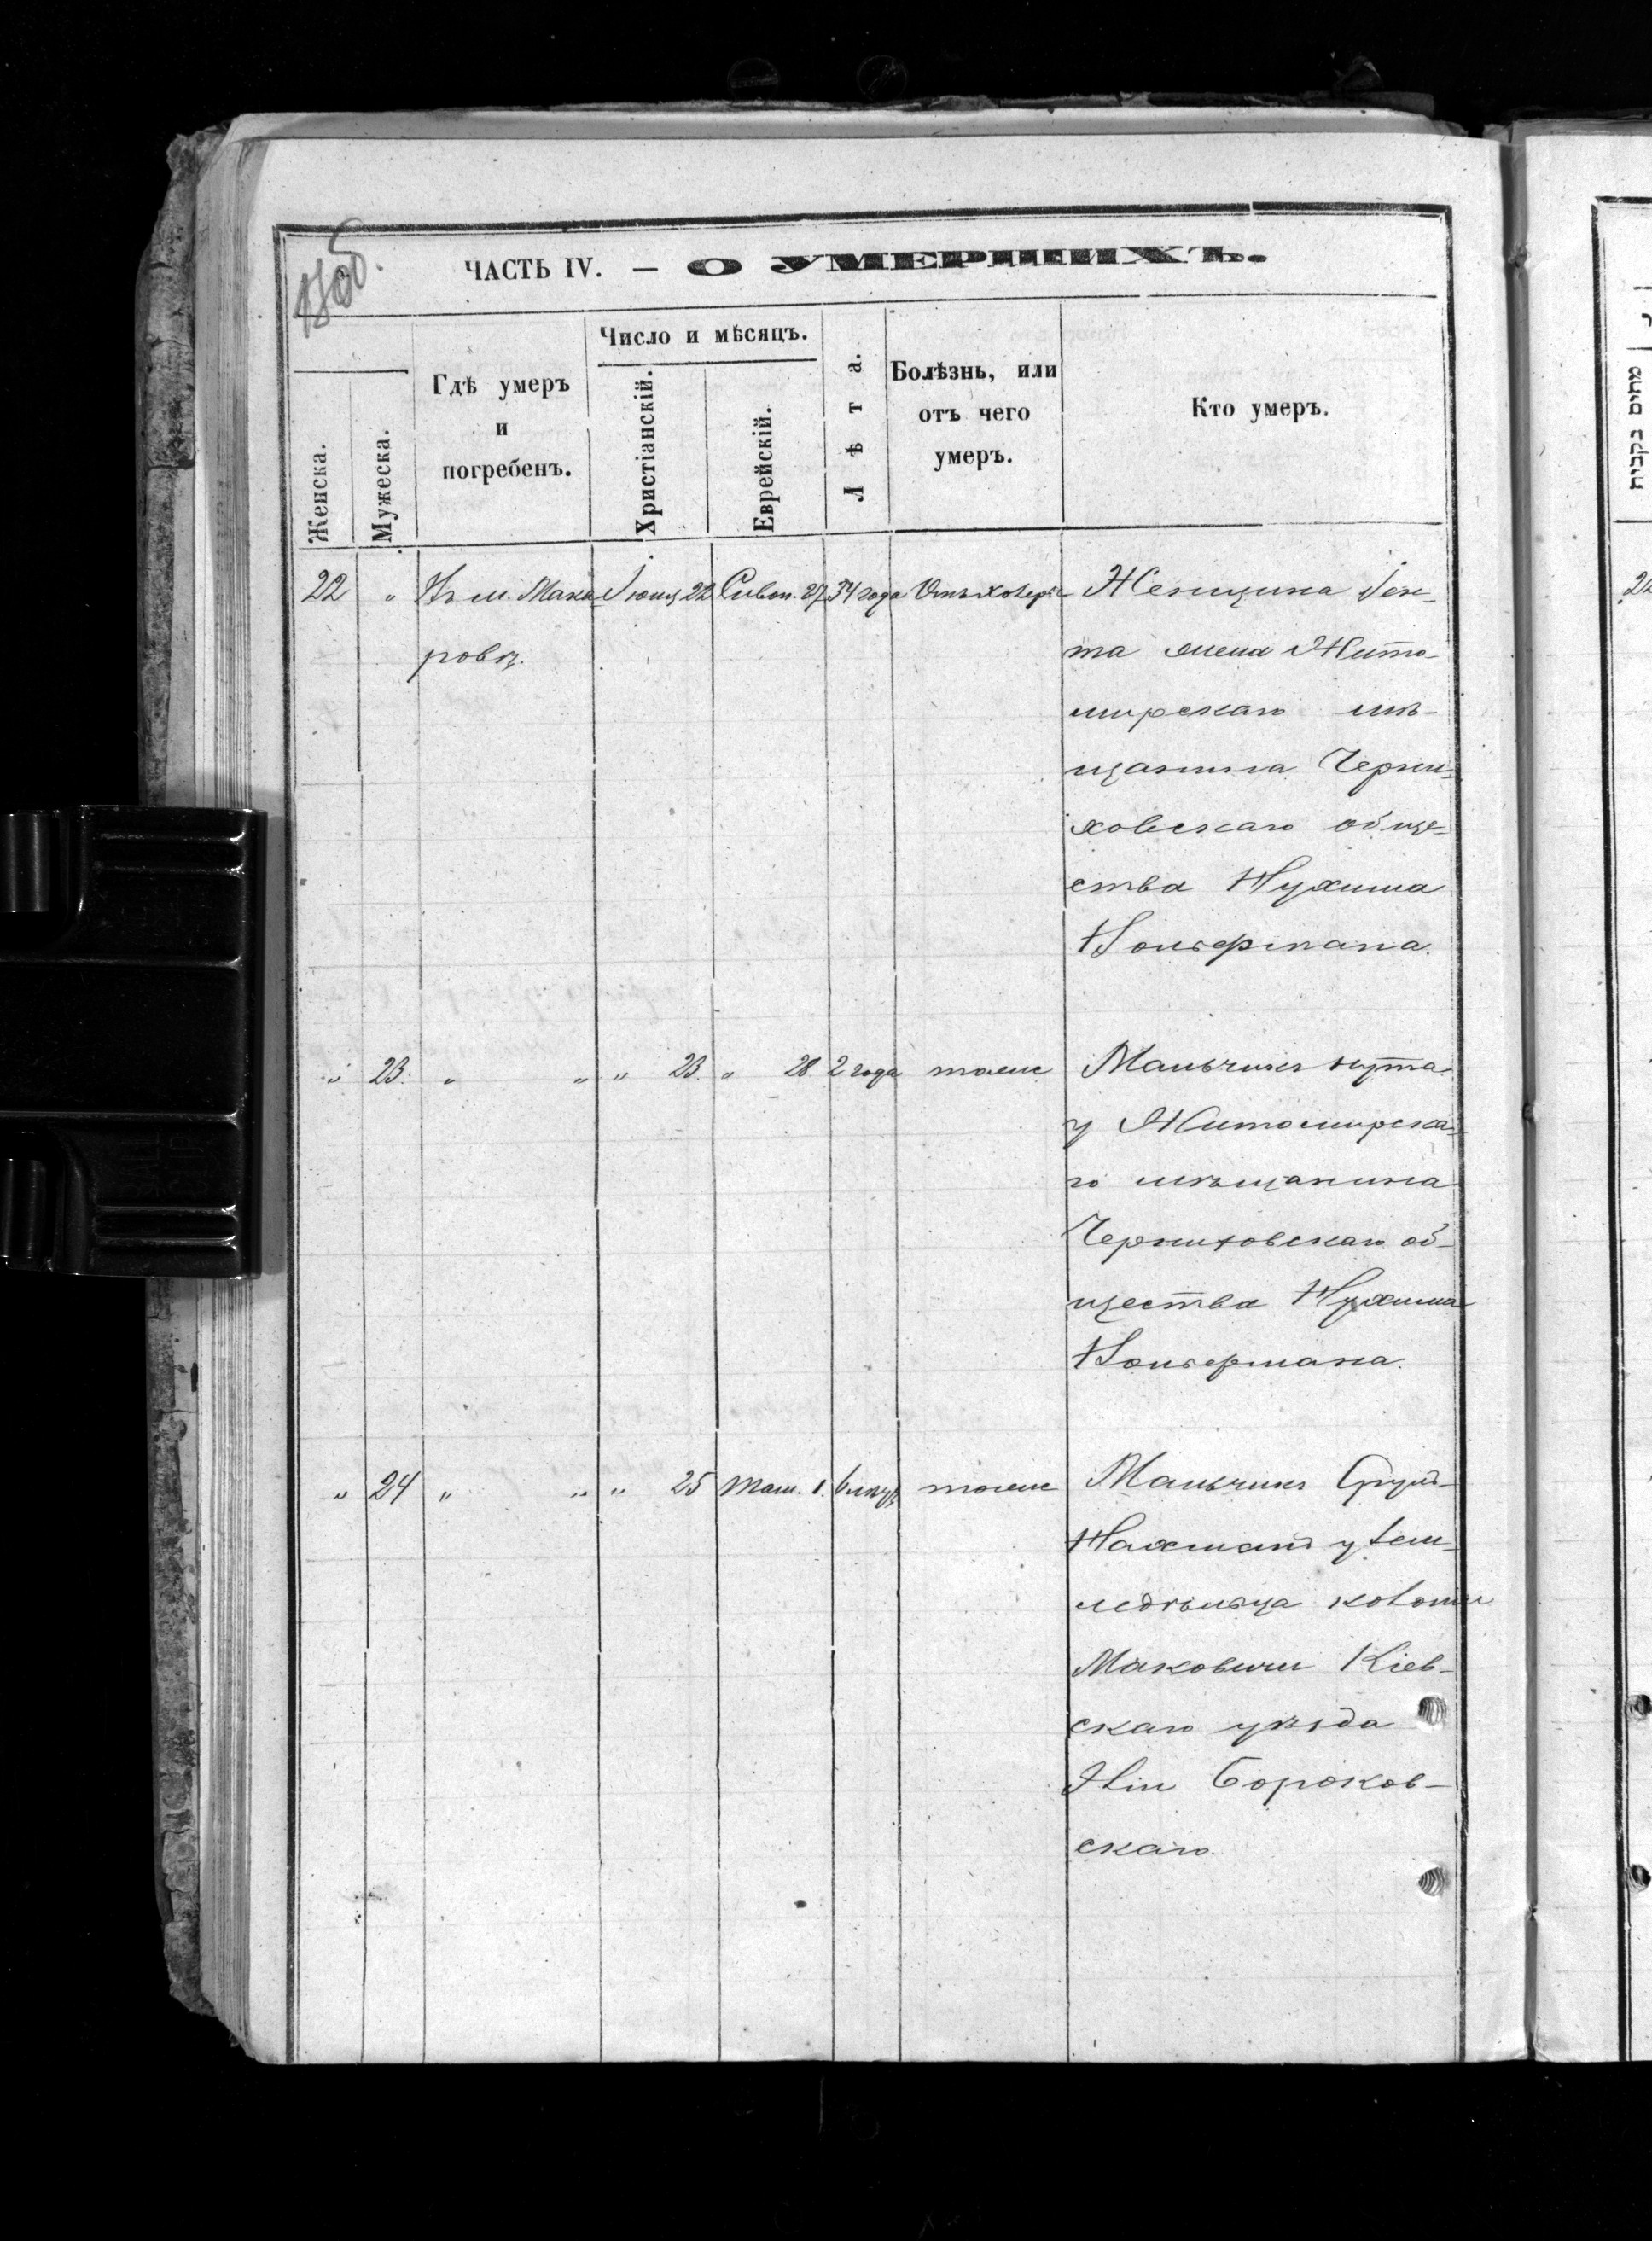 ЧАСТЬ IV. — О УМЕРШИХЪ.
Женска.
Мужеска.
Гдѣ умеръ
и
погребенъ.
Число и мѣсяцъ.
Христіанскій.
Еврейскій.
Лѣта.
Болѣзнь, или
отъ чего
умеръ.
Кто умеръ.
22 " Въ м. Мака- Іюня 22 Сиван. 27 34 года Отъ холеры Женщина Ген-
ровѣ. та жена Жито-
мирскаго мѣ-
щанина Черни-
ховскаго обще-
ства Нухима
" 23. " " " 23. " 28 2 года тоже Мальчикъ Нута
у Житомирска-
го мѣщанина
Черниховскаго об-
щества Нухима
" 24 " " " 25 Там. 1. тоже Мальчикъ Сруль-
Нахманъ у Зем-
ледѣльца колоніи
Маковичи Кіев-
скаго уѣзда
Боржов-
скаго.
מתים